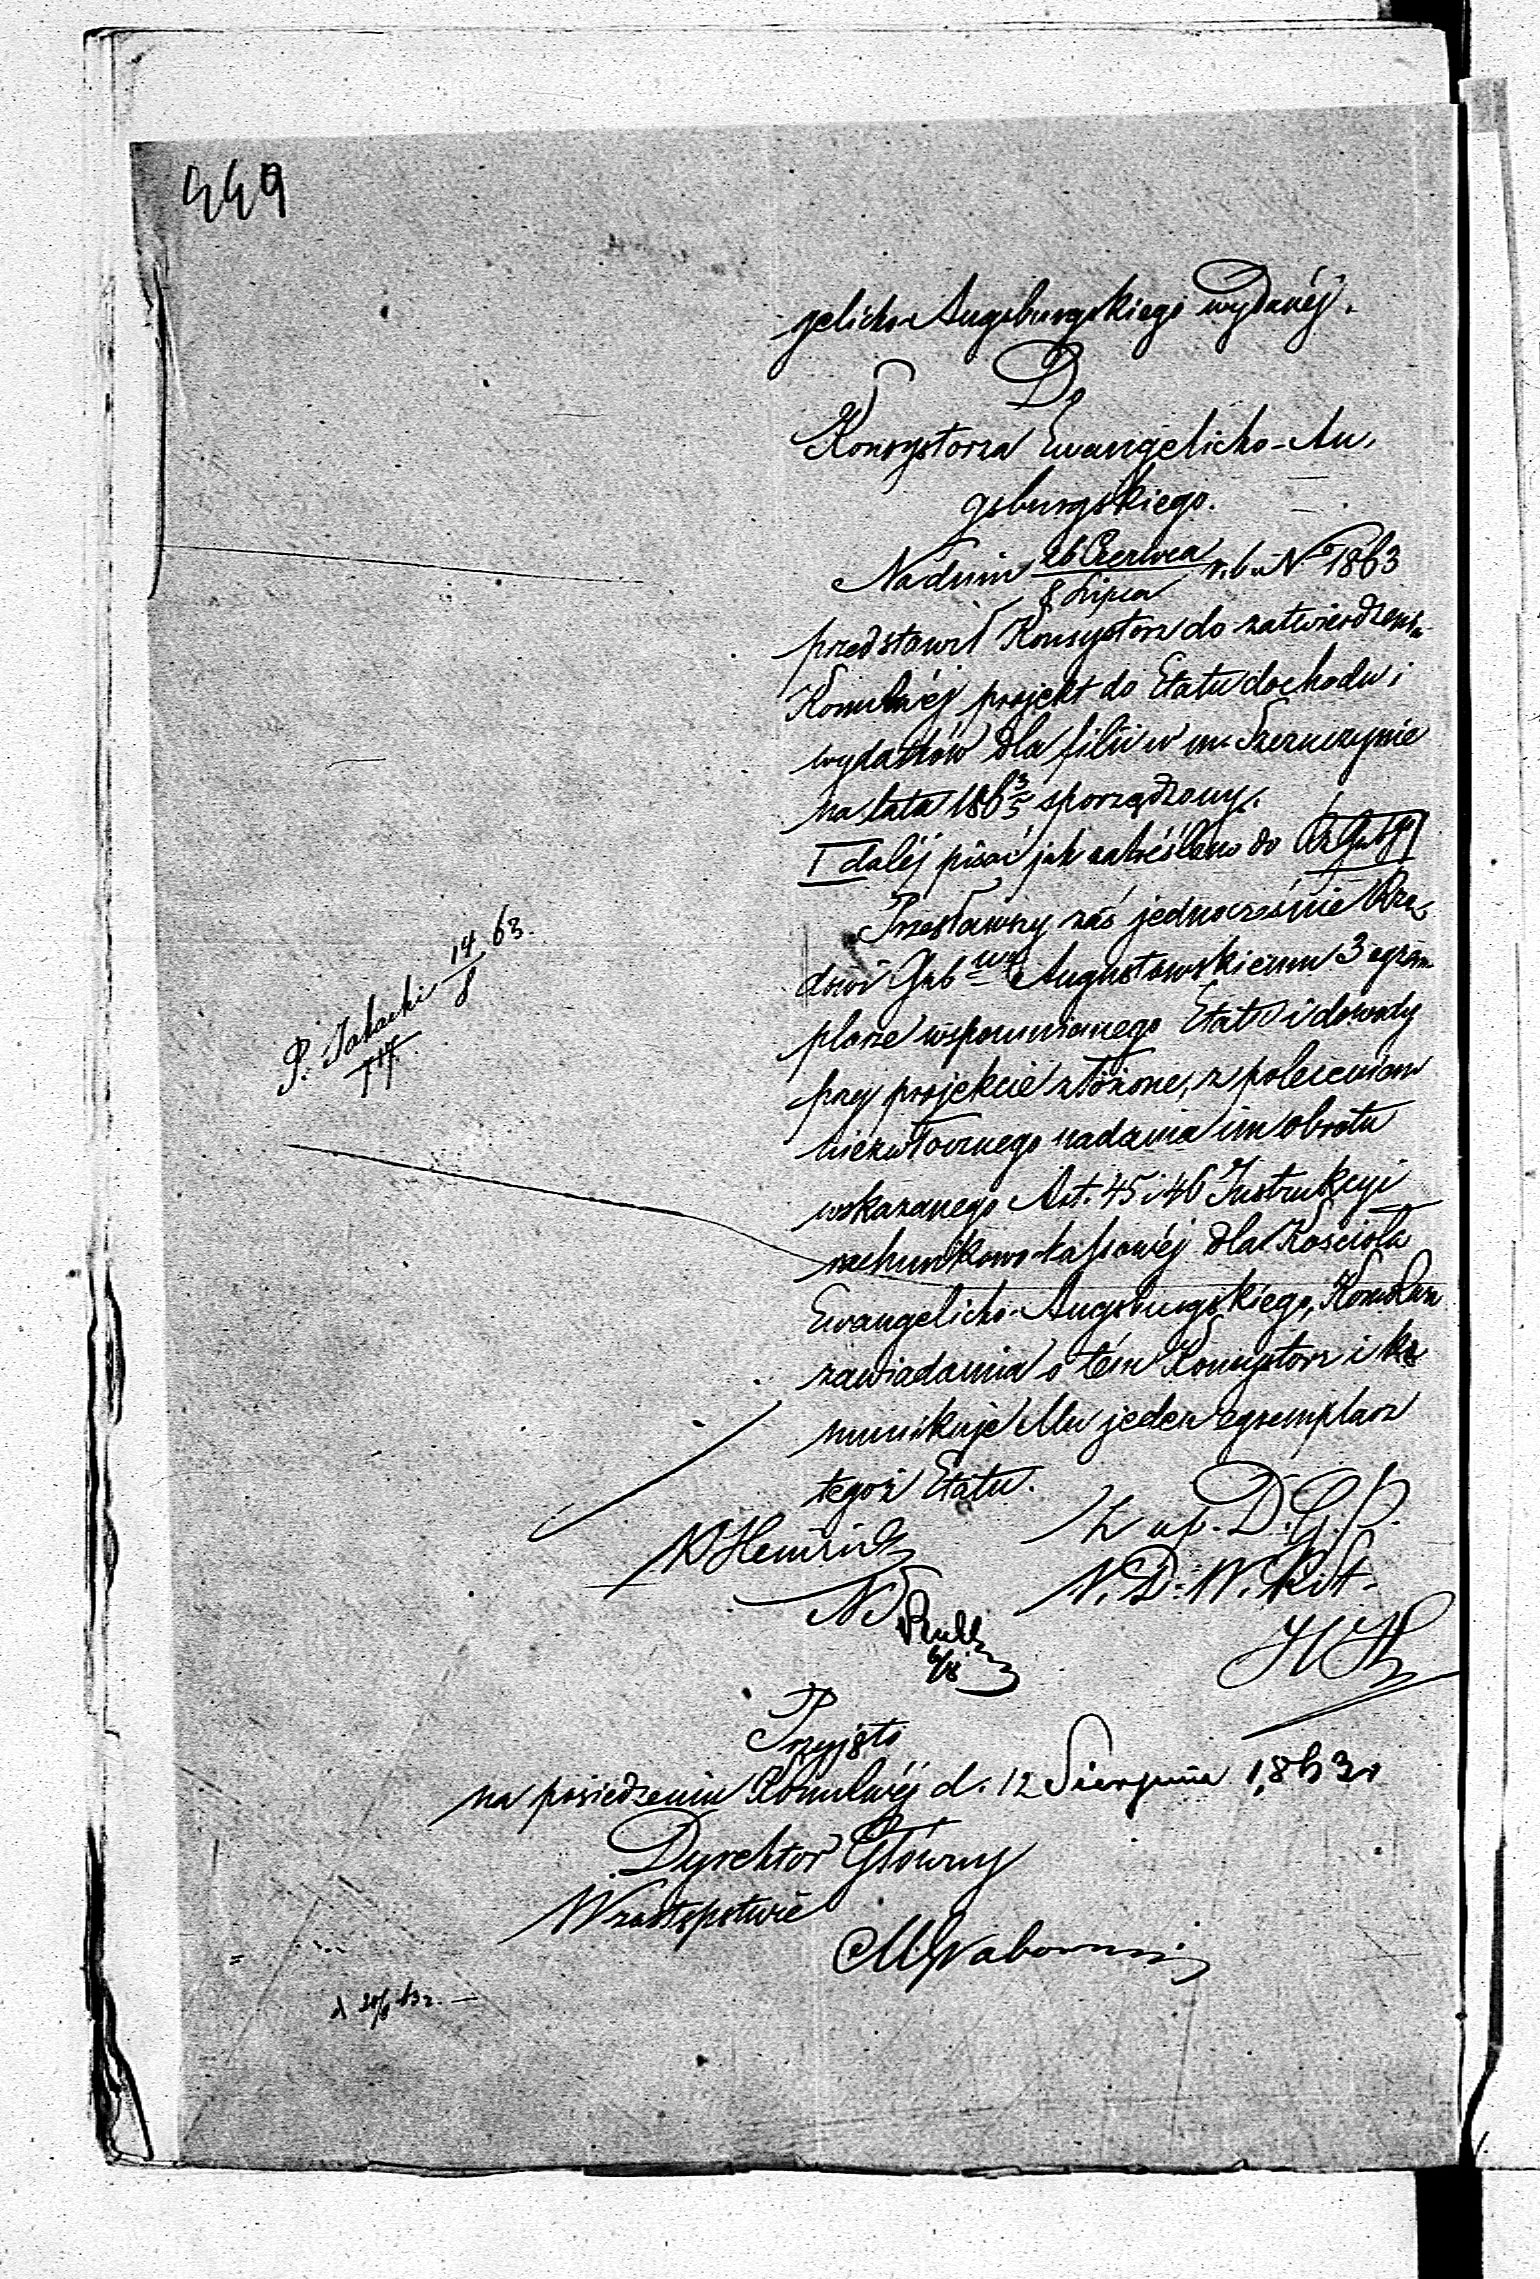 449
gelicko-Augsburgskiego wydanéj.
Do
Konsystorza Ewangelicko-Au-
gsburgskiego.
Na dniu 26 Czerwca / 8 Lipca r. b. N° 1863
przedstawił Konsystorz do zatwierdzenia
projekt do Etatu dochodu i
wydatków dla filii w m. Szczuczynie
na lata 1863/5 sporządzony.
I daléj pisać jak zakréślono do Rz Gub
Przesławszy zaś jednocześnie Rzą-
dowi Gub Augustowskiemu 3 egzem
plarze wspomnianego Etatu i dowody
przy projekcie złożone, z poleceniem
niezwłocznego nadania im obrotu
wskazanego Art. 45 i 46 Instrukcyi
rachunkowo-kassowéj dla Kościoła
Ewangelicko-Augsburgskiego,
zawiadamia o tém Konsystorz i ko
munikuje Mu jeden egzemplarz
tegoż Etatu.
P. 14/8 63.
Z up. D. G. P.
N. D. W.
Przyjęto
na posiedzeniu d. 12 Sierpnia 1863 r
Dyrektor Główny
W zastępstwie